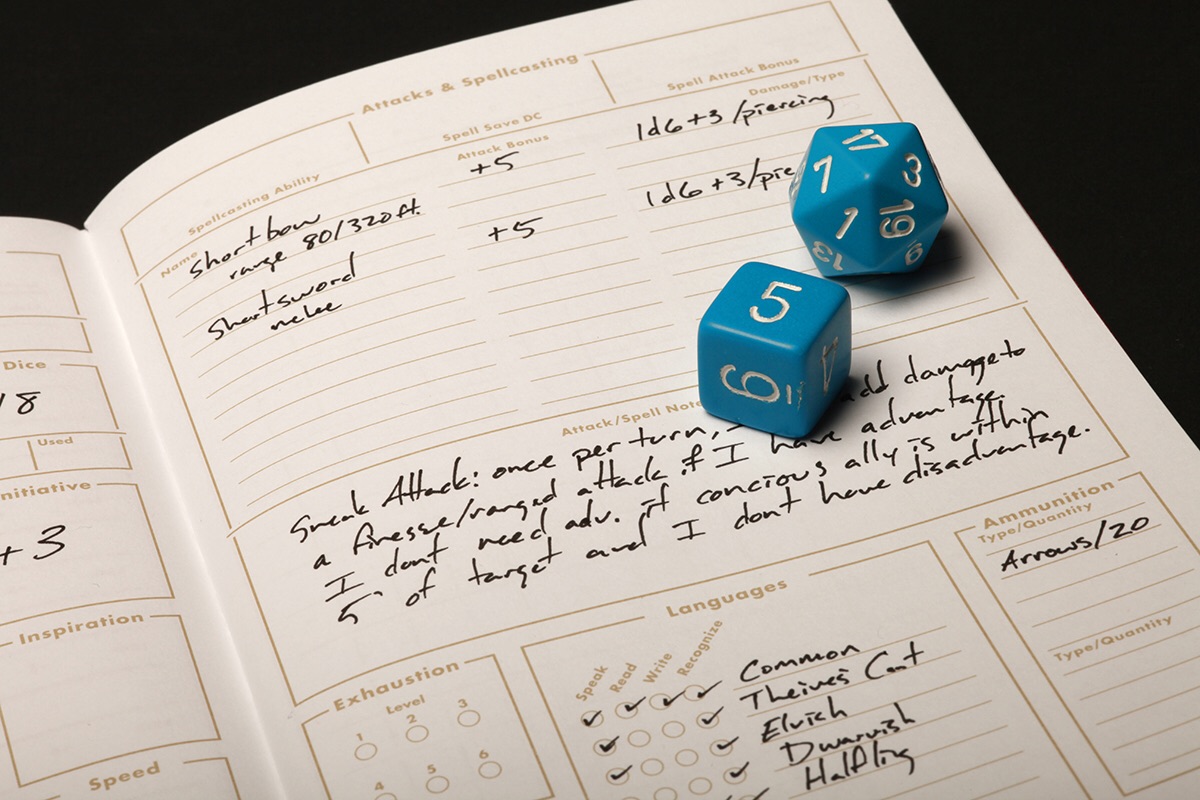 Attacks & Spellcasting
Spellcasting Ability
Spell Save DC
Spell Attack Bonus
Name
Attack Bonus
Damage/Type
Shortbow
range 80/320ft.
+5
1d6+3/piercing
Shortsword
melee
+5
1d6+3/pie
Attack/Spell Note
Sneak Attack: once per turn, add damage to
a finesse/ranged attack if I have advantage.
I dont need adv. if concious ally is within
5' of target and I dont have disadvantage.
Ammunition
Type/Quantity
Arrows/20
Type/Quantity
Languages
Speak
Read
Write
Recognize
Common
Theives Cant
Elvish
Dwarvish
Halfling
Exhaustion
Level
1
2
3
4
5
6
Dice
18
Used
nitiative
+3
Inspiration
Speed
17
7
3
1
19
13
9
5
6
4